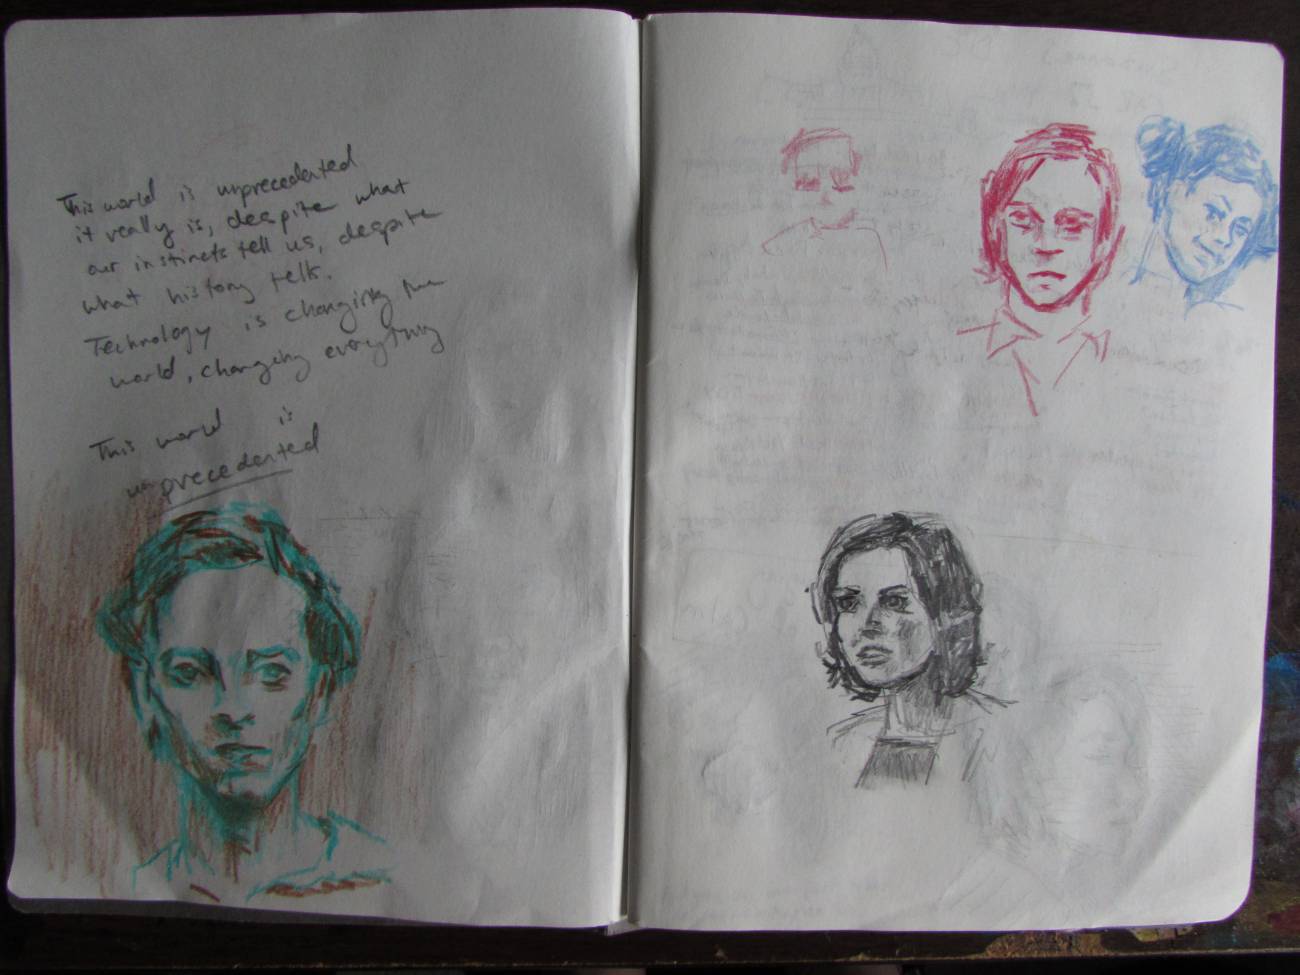 This world is unprecedented
it really is, despite what
our instincts tell us, despite
what history tells.
Technology is changing the
world, changing everything
This world is
unprecedented